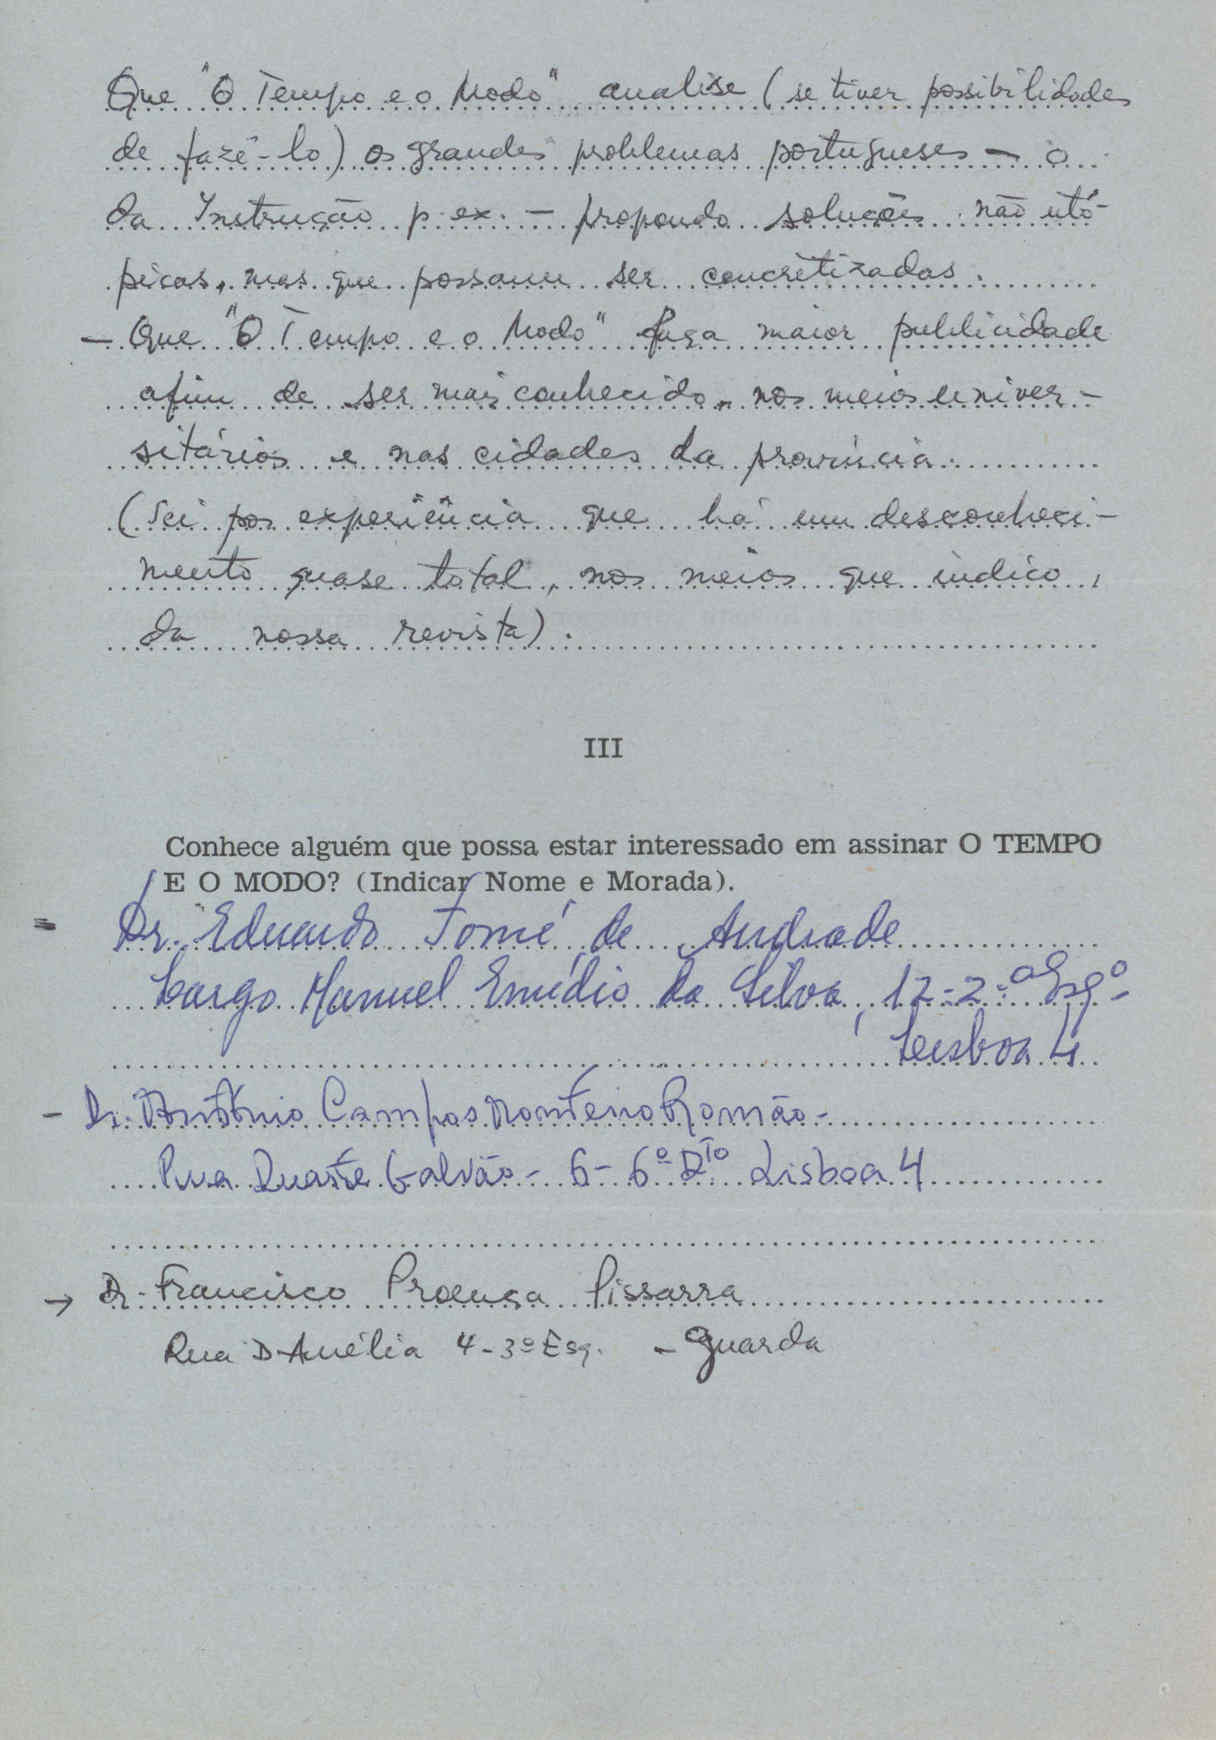 Que "O Tempo e o Modo" analise (se tiver possibilidades
de fazê-lo) os grandes problemas portugueses — o
da Instrução p. ex. — propondo soluções não utó-
picas, mas que possam ser concretizadas.
— Que "O Tempo e o Modo" faça maior publicidade
afim de ser mais conhecido, nos meios univer-
sitários e nas cidades da província.
(Sei por experiência que há um desconheci-
mento quase total, nos meios que indico,
da nossa revista).
III
Conhece alguém que possa estar interessado em assinar O TEMPO
E O MODO? (Indicar Nome e Morada).
- Dr. Eduardo Tomé de Andrade
Largo Manuel Emídio da Silva, 12-2.º Esqº
Lisboa 4
- Dr. António Campos Monteiro Romão -
Rua Duarte Galvão - 6 - 6º DTO Lisboa 4
→ Dr. Francisco Proença Pissarra
Rua D. Amélia 4-3º Esq. - Guarda